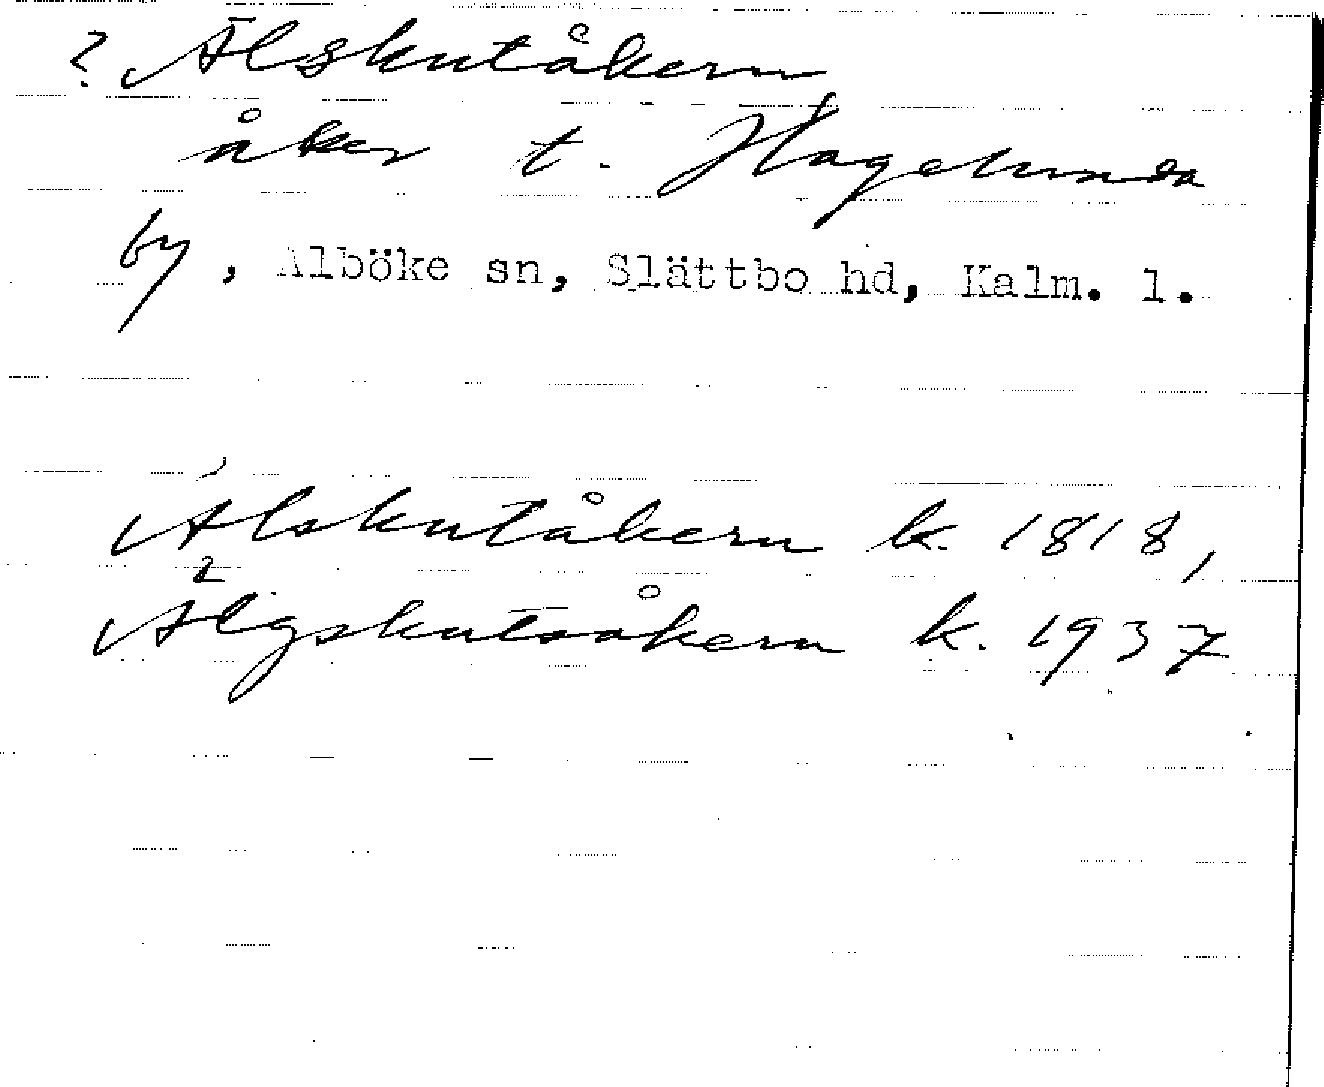 ? Älskutåkern
åker t. Hagelunda
by, Alböke sn, Slättbo hd, Kalm. l.
Älskutåkern k. 1818,
Älgskutsåkern k. 1937